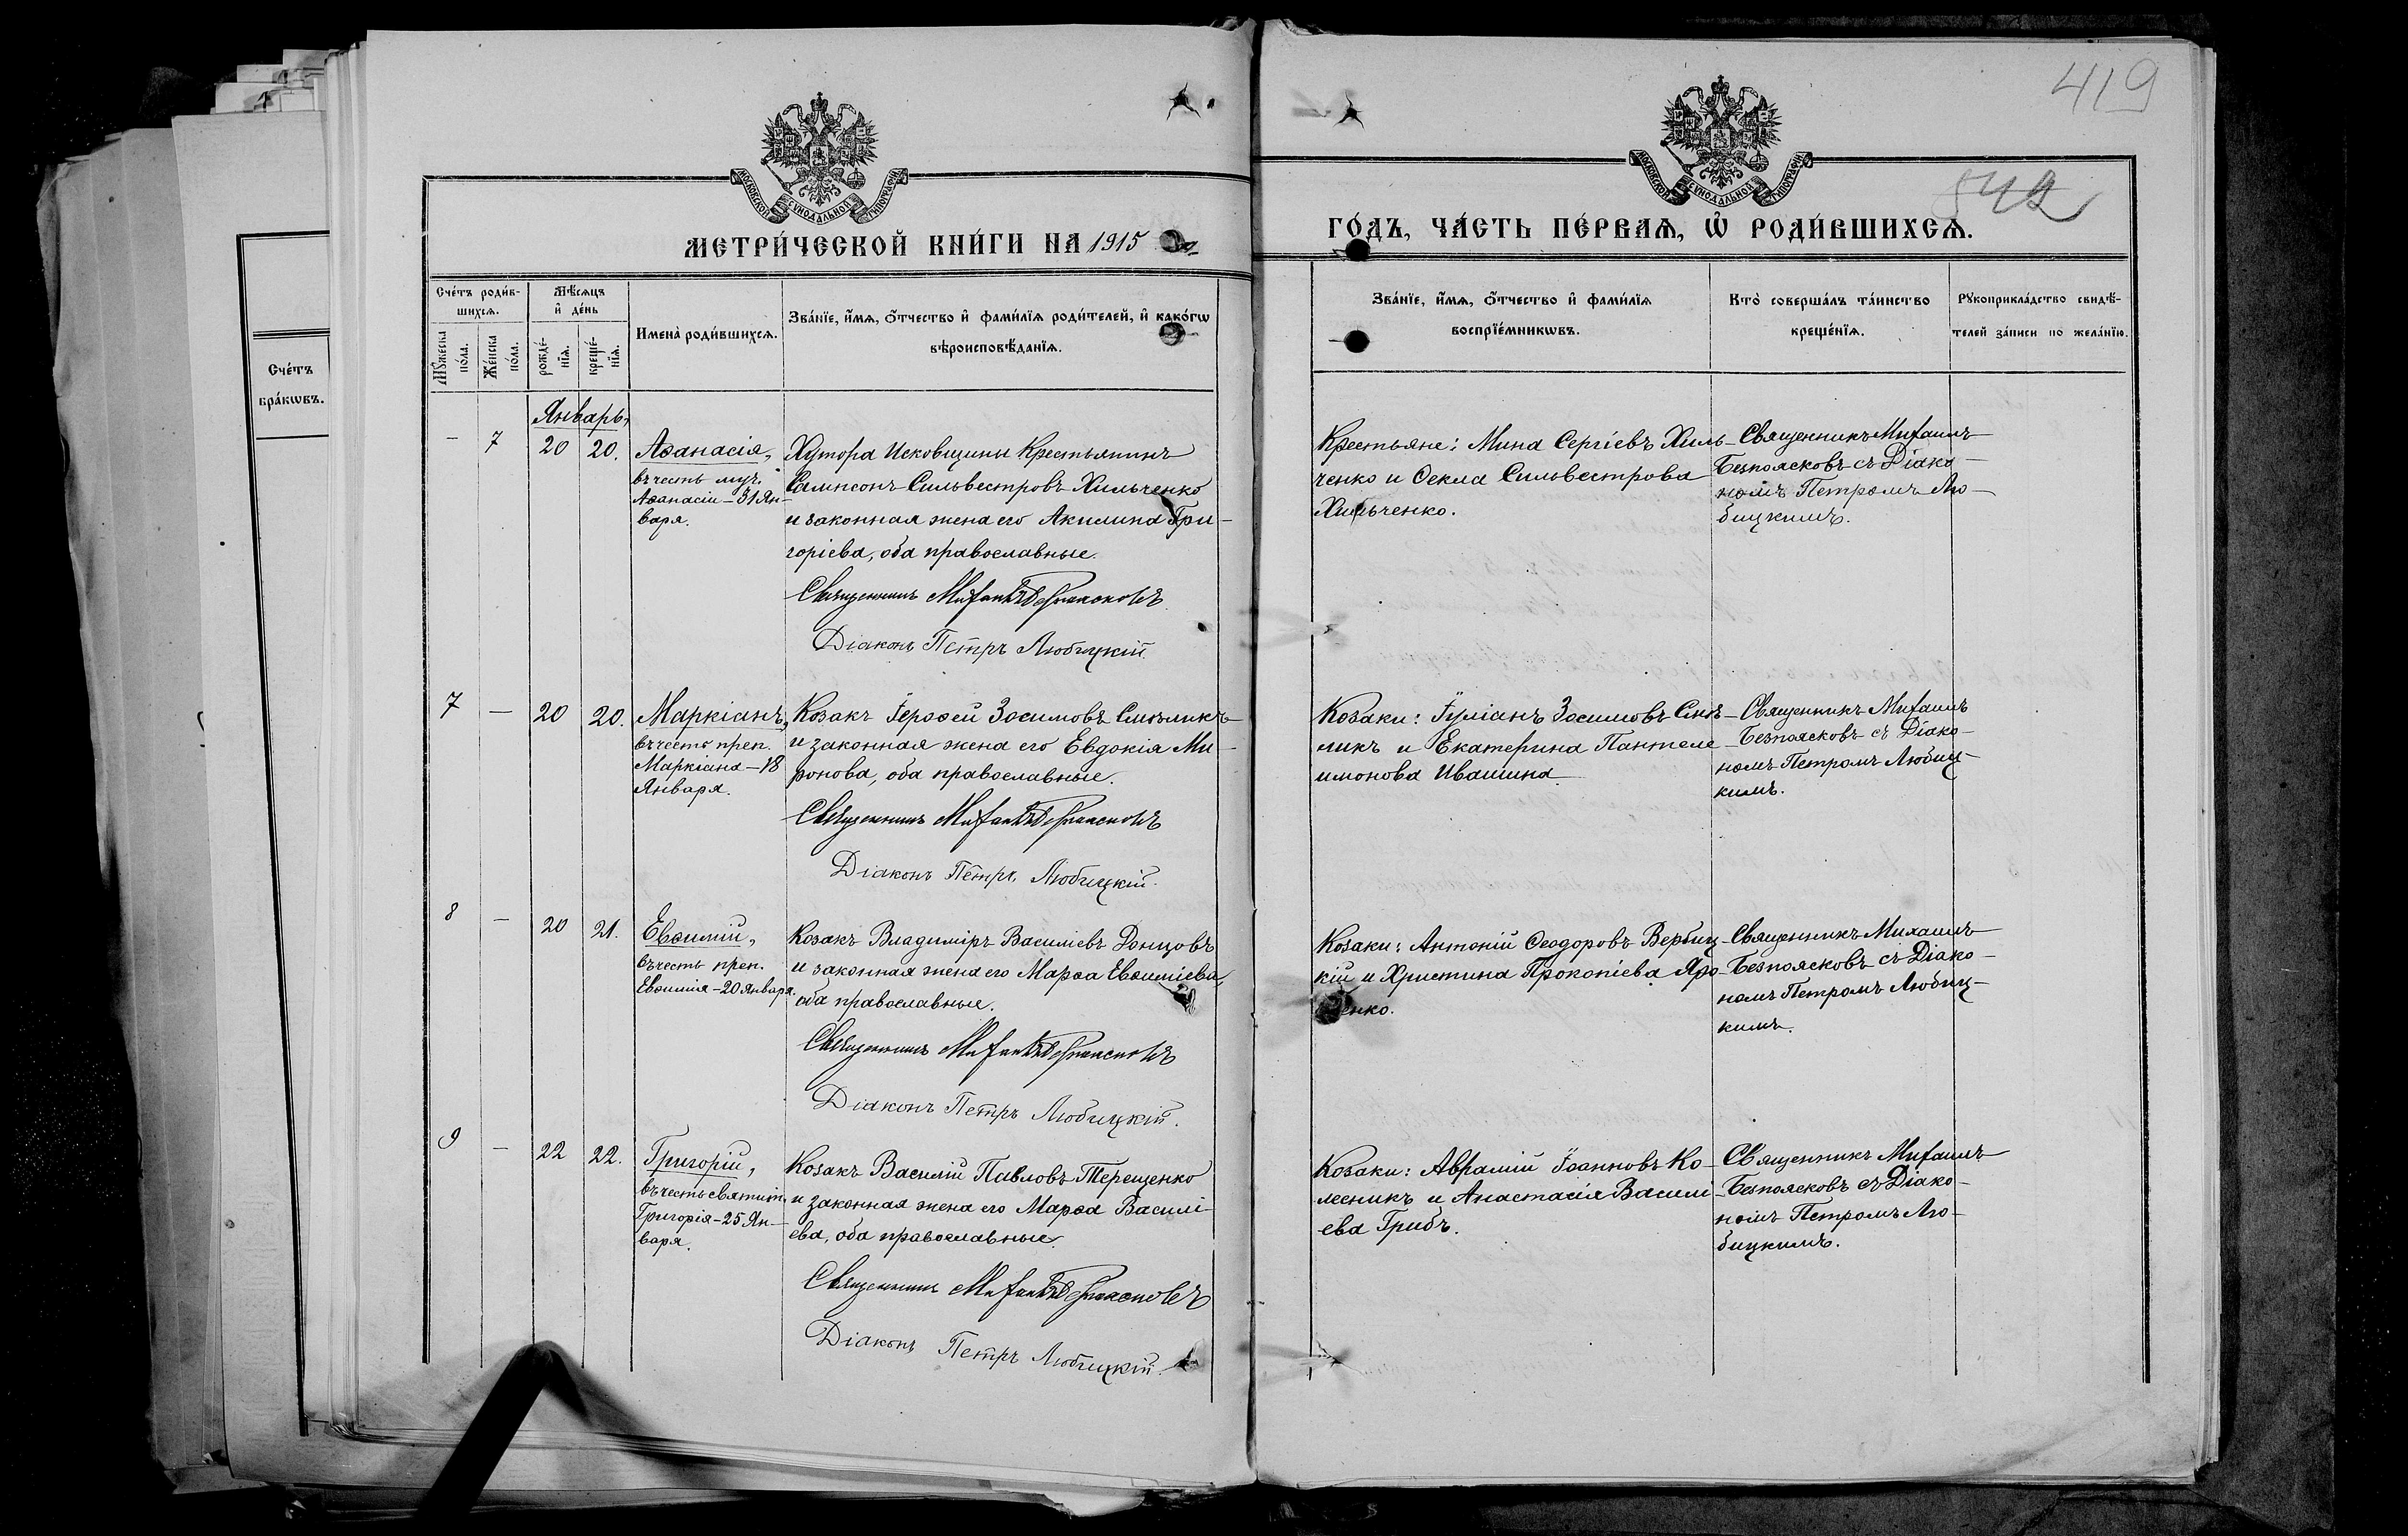 419
542
МОСКОВСКОЙ СѴНОДАЛЬНОЙ ТИПОГРАФІИ
МОСКОВСКОЙ СѴНОДАЛЬНОЙ ТИПОГРАФІИ
МЕТРИ́ЧЕСКОЙ КНИ́ГИ НА 1915
ГО́ДЪ, ЧА́СТЬ ПЕ́РВАѦ, Ѡ҆ РОДИ́ВШИХСѦ.
Сче́тъ
бра́кѡвъ.
Сче́тъ роди́в-
шихсѧ.
Мꙋ́жеска
по́ла.
Же́нска
по́ла.
Мѣ́сѧцъ
и҆ де́нь
рожде́-
нїѧ.
креще́-
нїѧ.
Имена̀ роди́вшихсѧ.
Зва́нїе, и҆́мѧ, ѻ҆́тчество и҆ фами́лїѧ роди́телей, и҆ како́гѡ
вѣроисповѣ́данїѧ.
Зва́нїе, и҆́мѧ, ѻ҆́тчество и҆ фами́лїѧ
воспрїе́мникѡвъ.
Кто̀ соверша́лъ та́инство
креще́нїѧ.
Рꙋкоприкла́дство свидѣ́-
телей за́писи по жела́нїю.
Январь,
– 7 20 20.
Аѳанасія,
въ честь муч.
Аѳанасіи – 31 Ян-
варя.
Хутора Исковщины Крестьянинъ
Сампсонъ Сильвестровъ Хильченко
и законная жена его Акилина Гри-
горіева, оба православные.
Священникъ Михаилъ Безпоясковъ
Діаконъ Петръ Любицкій.
Крестьяне: Мина Сергіевъ Хиль-
ченко и Ѳекла Сильвестрова
Хильченко.
Священникъ Михаилъ
Безпоясковъ съ Діако-
номъ Петромъ Лю-
бицкимъ.
7 – 20 20.
Маркіанъ,
въ честь преп.
Маркіана – 18
Января.
Козакъ Іероѳей Зосимовъ Смѣликъ
и законная жена его Евдокія Ми-
ронова, оба православные.
Священникъ Михаилъ Безпоясковъ
Діаконъ Петръ Любицкій.
Козаки: Іуліанъ Зосимовъ Смѣ-
ликъ и Екатерина Пантеле-
имонова Ивашина
Священникъ Михаилъ
Безпоясковъ съ Діако-
номъ Петромъ Любиц-
кимъ.
8 – 20 21.
Евѳимій,
въ честь преп.
Евѳимія – 20 Января.
Козакъ Владиміръ Василіевъ Донцовъ
и законная жена его Марѳа Евѳиміева
оба православные.
Священникъ Михаилъ Безпоясковъ
Діаконъ Петръ Любицкій.
Козаки: Антоній Ѳеодоровъ Вербиц-
кій и Христина Прокопіева
Священникъ Михаилъ
Безпоясковъ съ Діако-
номъ Петромъ Любиц-
кимъ.
9 – 22 22.
Григорій,
въ честь святит.
Григорія – 25 Ян-
варя.
Козакъ Василій Павловъ Терещенко
и законная жена его Марѳа Василі-
ева, оба православные.
Священникъ Михаилъ Безпоясковъ
Діаконъ Петръ Любицкій.
Козаки: Аврамій Іоанновъ Ко-
лесникъ и Анастасія Василі-
ева Грибъ.
Священникъ Михаилъ
Безпоясковъ съ Діако-
номъ Петромъ Лю-
бицкимъ.